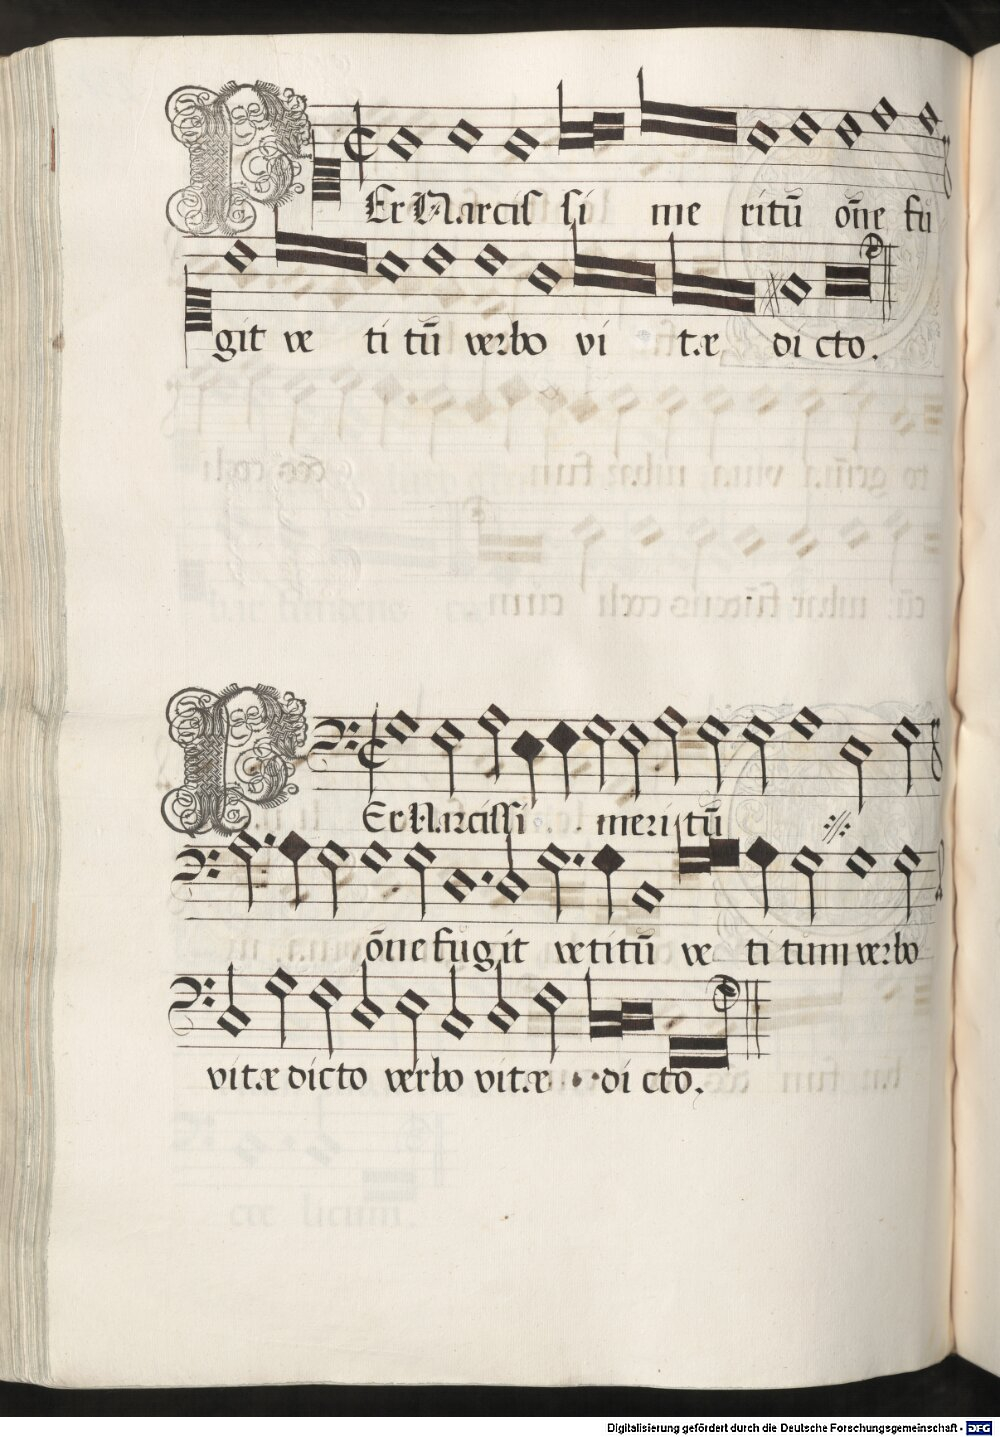 PEr Narcissi me ritū oñe fu
git ve ti tū verbo vi tæ di cto.
PEr Narcissi meri tū
oñe fugit vetitū ve ti tum verbo
vitæ dicto verbo vitæ di cto.
Digitalisierung gefördert durch die Deutsche Forschungsgemeinschaft - DFG